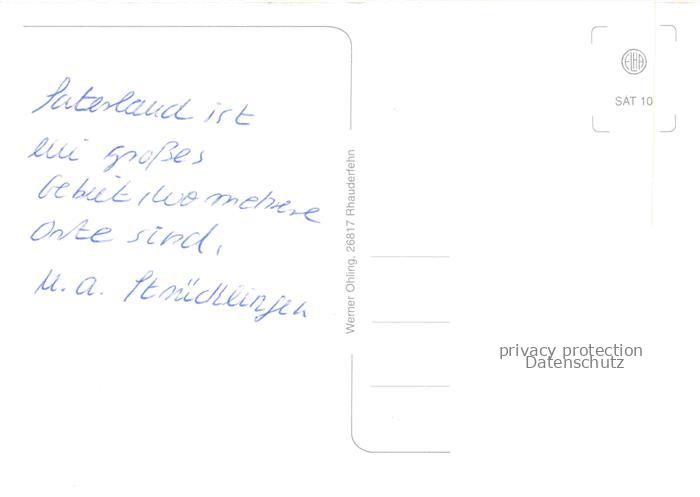 Saterland ist
ein großes
Gebiet, wo mehrere
Orte sind,
u. a. Strücklingen
Werner Ohling, 26817 Rhauderfehn
ELHA
SAT 10
privacy protection
Datenschutz